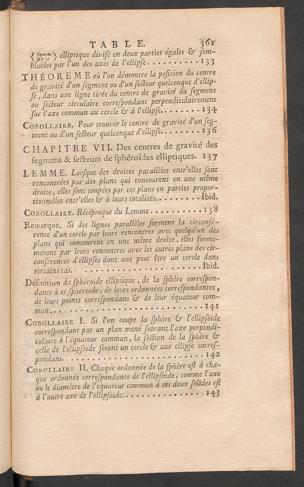 TABLE. 361
elliptique divisé en deux parties égales & sem-
blables par l'un des axes de l'ellipse. . . . . . . . . 133
THÉOREME où l'on démontre la position du centre
de gravité d'un segment ou d'un secteur quelconque d'ellip-
se, dans une ligne tirée du centre de gravité du segment
ou secteur circulaire correspondant perpendiculairement
sur l'axe commun au cercle & à l'ellipse. . . . . . . 134
COROLLAIRE. Pour trouver le centre de gravité d'un seg-
ment ou d'un secteur quelconque d'ellipse. . . . . . 136
CHAPITRE VII. Des centres de gravité des
segmens & secteurs de sphéroïdes elliptiques. 137
LEMME. Lorsque des droites paralleles entr'elles sont
rencontrées par des plans qui concourent en une même
droite, elles sont coupées par ces plans en parties propor-
tionnelles entr'elles & à leurs totalités. . . . . . . Ibid.
COROLLAIRE. Réciproque du Lemme. . . . . . . . . 138
Remarque. Si des lignes paralleles forment la circonfé-
rence d'un cercle par leurs rencontres avec quelqu'un des
plans qui concourent en une même droite, elles forme-
meront par leurs rencontres avec les autres plans des cir-
conférences d'ellipses dont une peut être un cercle dans
certains cas. . . . . . . . . . . . . . . . . Ibid.
Définition du sphéroïde elliptique, de la sphere correspon-
dante à ce sphéroïde, de leurs ordonnées correspondantes,
de leurs points correspondans & de leur équateur com-
mun. . . . . . . . . . . . . . . . . . . . 141
COROLLAIRE I. Si l'on coupe la sphère & l'ellipsoïde
correspondant par un plan mené suivant l'axe perpendi-
culaire à l'équateur commun, la section de la sphère &
celle de l'ellipsoïde seront un cercle & une ellipse corres-
pondans. . . . . . . . . . . . . . . . . . . 142
COROLLAIRE II. Chaque ordonnée de la sphère est à cha-
que ordonnée correspondante de l'ellipsoïde, comme l'axe
ou le diamètre de l'équateur commun à ces deux solides est
à l'autre axe de l'ellipsoïde. . . . . . . . . . . . 143